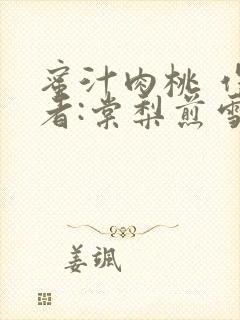 蜜汁肉桃 
者:棠梨煎雪
姜飒